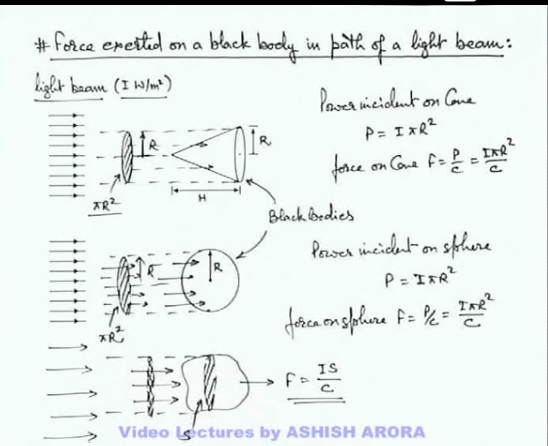 # Force exerted on a black body in path of a light beam:
light beam (I W/m²)
Power incident on Cone
P = IπR²
force on Cone F = P/C = IπR²/C
R
R
πR²
H
Black bodies
Power incident on sphere
P = IπR²
force on sphere F = P/C = IπR²/C
R
R
πR²
F = IS/C
S
Video Lectures by ASHISH ARORA